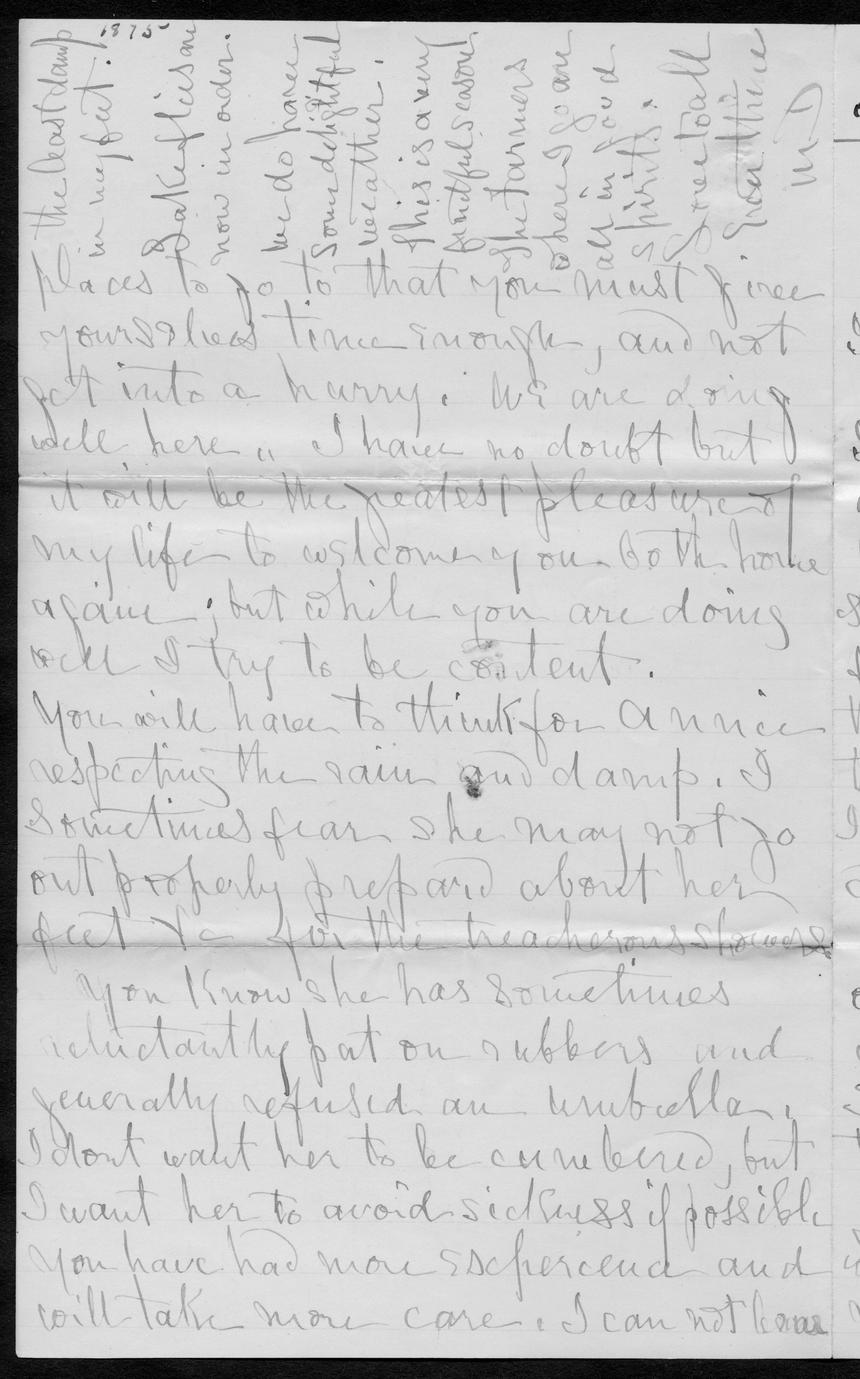 1875
places to go to that you must give
yourselves time enough, and not
get into a hurry. We are doing
well here. I have no doubt but
it will be the greatest pleasure of
my life to welcome you both home
again; but while you are doing
well I try to be content.
You will have to think for Annie
respecting the rain and damp. I
sometimes fear she may not go
out properly prepared about her
feet &c for the treacherous showers
You know she has sometimes
reluctantly put on rubbers and
generally refused an umbrella.
I dont want her to be cumbered, but
I want her to avoid sickness if possible
You have had more experience and
will take more care. I can not bear
the least damp
in my feet.
Buckeflies are
now in order.
We do have
some delightful
weather.
This is a very
fruitful season.
The farmers
where I go are
all in good
spirits.
Love to all
from thine
M D